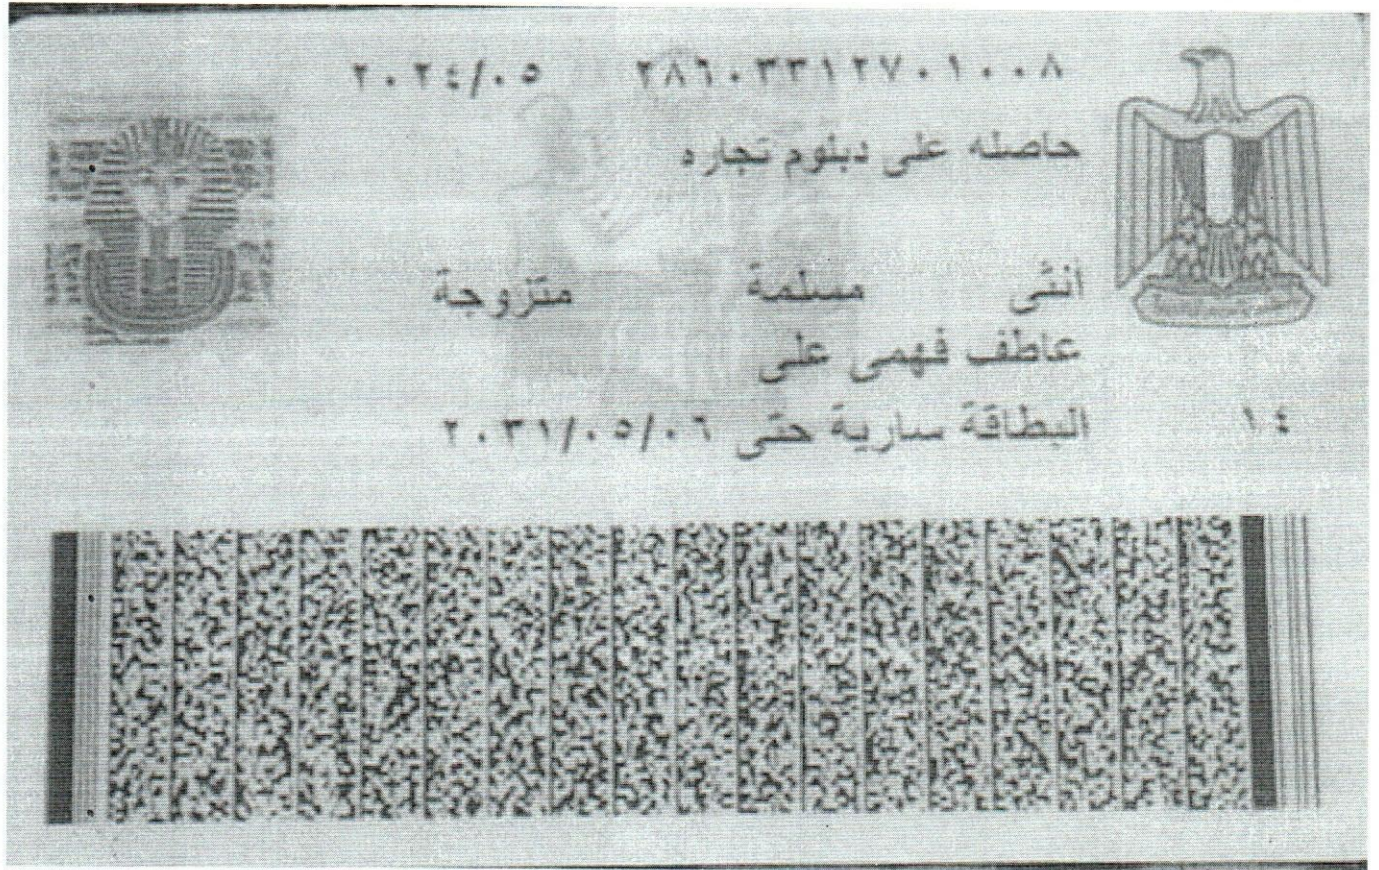 ٢٨٦٠٣٣١٢٧٠١٠٠٨ ٢٠٢٤/٠٥
حاصله على دبلوم تجاره
أنثى مسلمة متزوجة
عاطف فهمى على
البطاقة سارية حتى ٢٠٣١/٠٥/٠٦
١٤